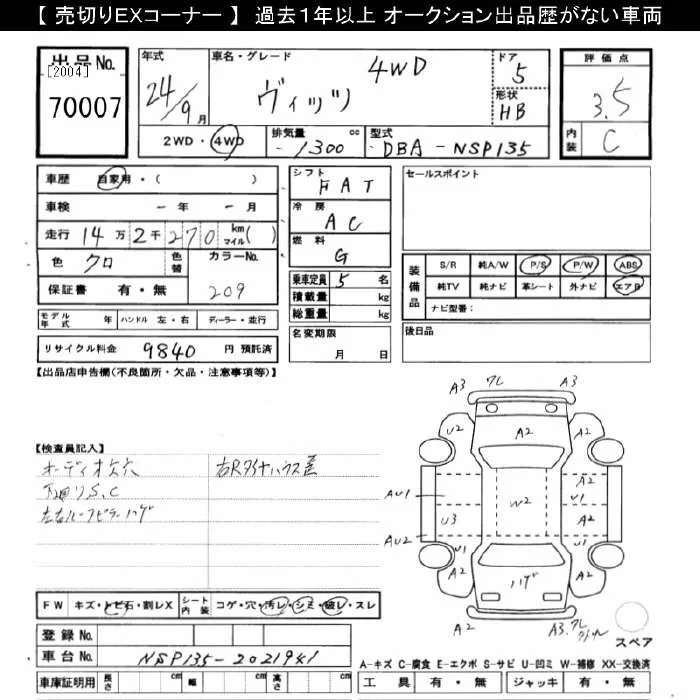 【 売切りEXコーナー 】 過去１年以上 オークション出品歴がない車両
出品No.
[2004]
70007
年式
24/9月
車名・グレード
4WD
ヴィッツ
ドア
5
形状
HB
2WD・4WD
排気量
1300 cc
型式
DBA-NSP135
評価点
3.5
内装
C
車歴 自家用・( )
車検 - 年 - 月
走行 14万2千270 km マイル( )
色 クロ 色替
カラーNo.
209
保証書 有・無
シフト
FAT
冷房
AC
燃料
G
乗車定員 5 名
積載量 kg
総重量 kg
名変期限
月 日
セールスポイント
装備品
S/R 純A/W P/S P/W ABS
純TV 純ナビ 革シート 外ナビ エアB
ナビ型番：
後日品
モデル年式 年 ハンドル 左・右 ディーラー・並行
リサイクル料金 9840 円 預託済
【出品店申告欄(不良箇所・欠品・注意事項等)】
【検査員記入】
オーディオ欠穴
下廻りS,C
左右ルーフピラーハゲ
A3 ワレ A3
U2 A2 A2
A2
U1
AU1 W2
U3 A2
AU2
U1 U1
A2 ハゲ A2
A2
スペア
FW キズ・トビ石・割レX シート内装 コゲ・穴・汚レ・シミ・破レ・スレ
登録No.
車台No. NSP135-2021941
車庫証明用 長さ cm 幅 cm 高さ cm
A-キズ C-腐食 E-エクボ S-サビ U-凹ミ W-補修 XX-交換済
工具 有・無 ジャッキ 有・無